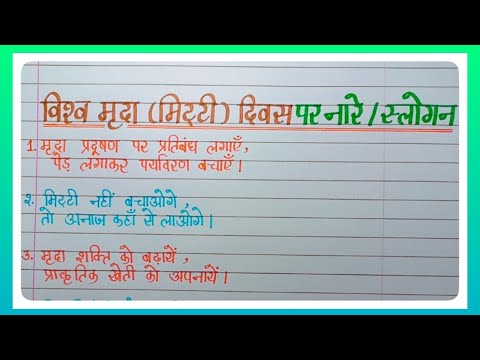 विश्व मृदा (मिट्टी) दिवस पर नारे / स्लोगन
1. मृदा प्रदूषण पर प्रतिबंध लगाएँ,
पेड़ लगाकर पर्यावरण बचाएँ।
२. मिट्टी नहीं बचाओगे,
तो अनाज कहाँ से लाओगे।
३. मृदा शक्ति को बढ़ायें,
प्राकृतिक खेती को अपनायें।